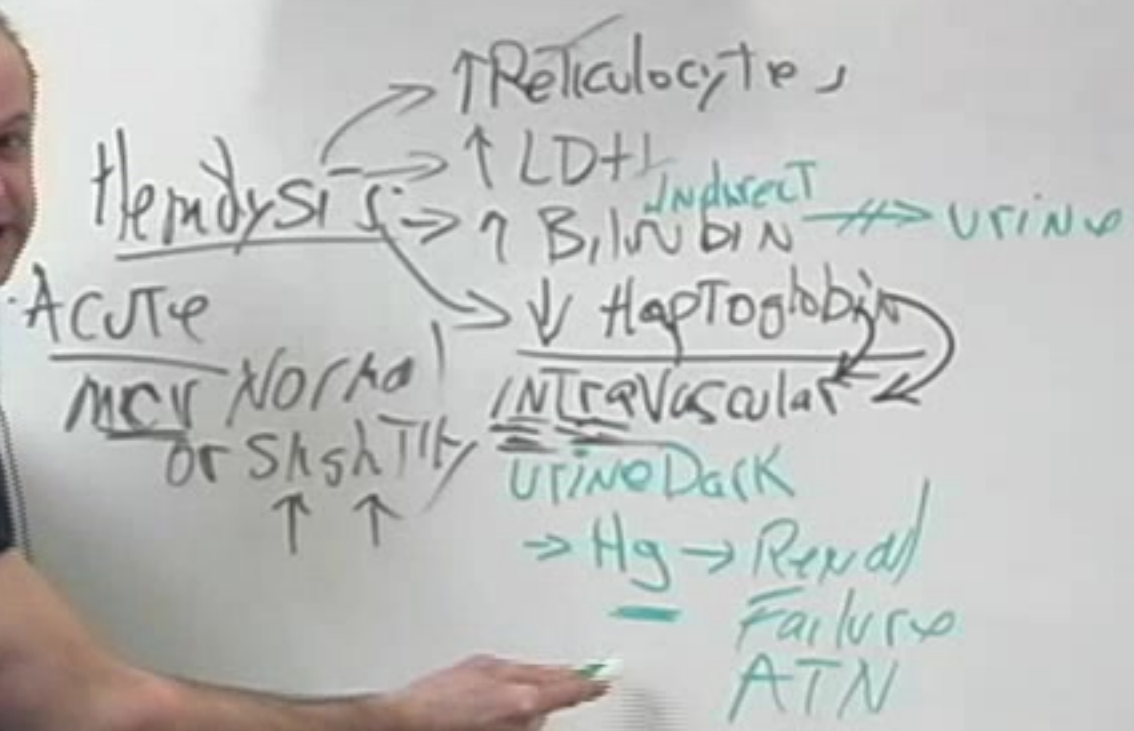 ↑ Reticulocytes
Hemolysis → ↑ LDH
→ ↑ Indirect Bilirubin -//-> urine
→ ↓ Haptoglobin
Acute
MCV Normal
or Slightly
↑ ↑
INTraVascular
urine Dark
→ Hg → Renal
Failure
ATN